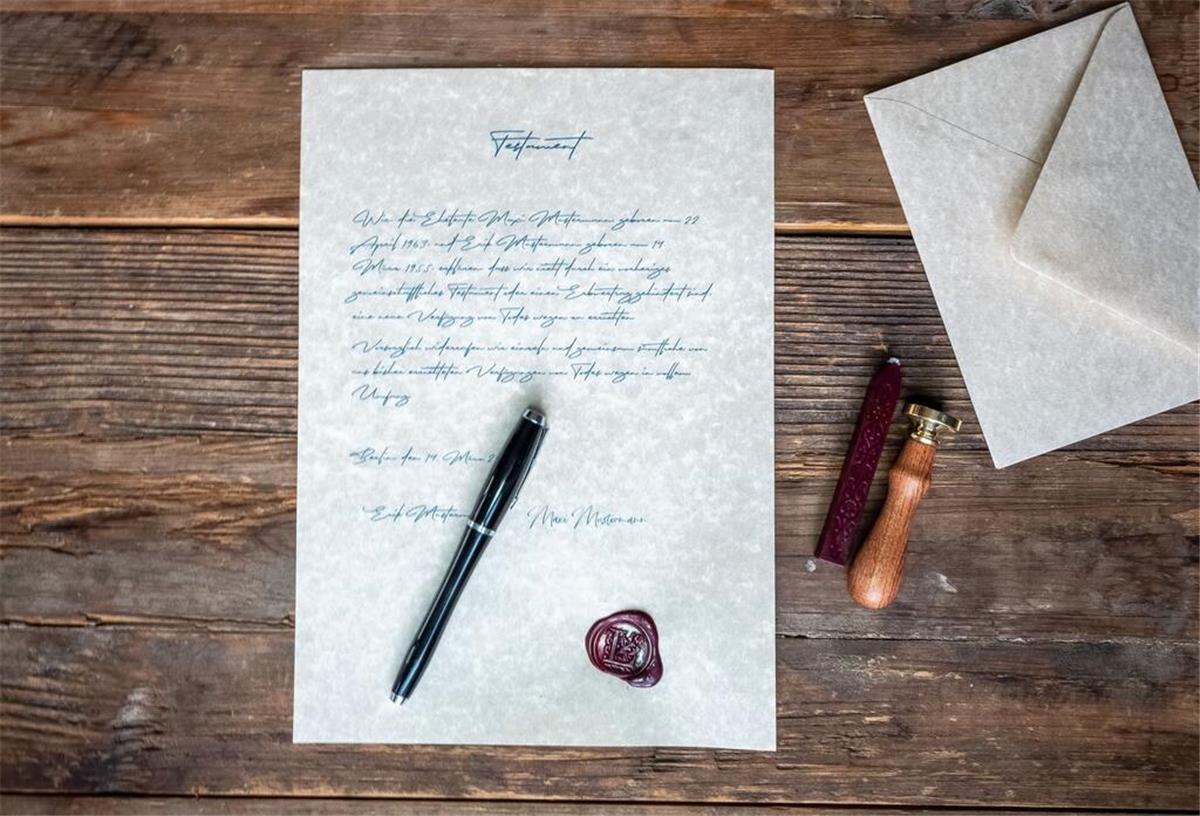 Testament
Wir die Eheleute Maxi Mustermann geboren am 22
April 1963. und Erik Mustermann geboren am 14
März 1955. erklären dass wir nicht durch ein vorheriges
gemeinschaftliches Testament oder einen Erbvertrag gehindert sind,
eine neue Verfügung von Todes wegen zu errichten
Vorsorglich widerrufen wir einzeln und gemeinsam sämtliche von
uns bisher errichteten Verfügungen von Todes wegen in vollem
Umfang
Berlin den 14. März 2
Erik Musterm Maxi Mustermann